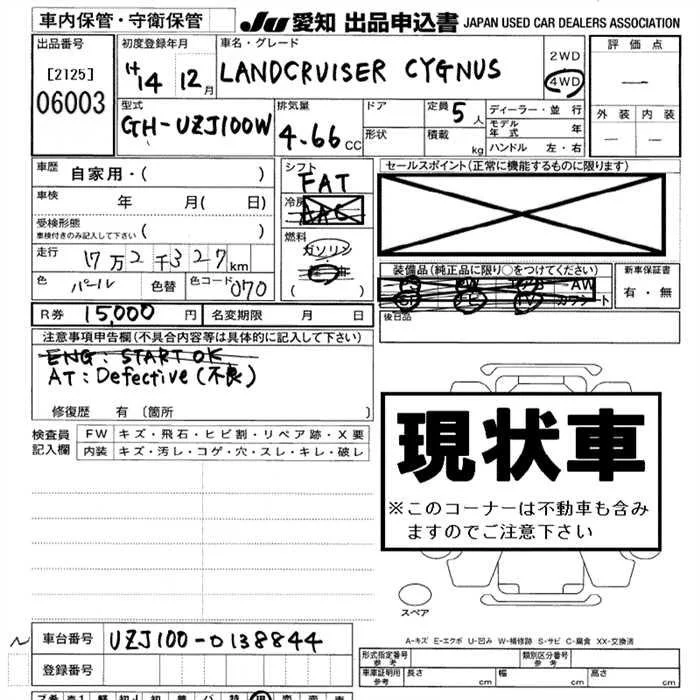 車内保管・守衛保管
JU 愛知 出品申込書 JAPAN USED CAR DEALERS ASSOCIATION
出品番号
[2125]
06003
初度登録年月
H14年 12月
車名・グレード
LANDCRUISER CYGNUS
2WD
4WD
評価点
—
外装 内装
— —
型式
GH-UZJ100W
排気量
4.66 CC
ドア
形状
定員 5人
積載 kg
ディーラー・並行
モデル年式 年
ハンドル 左・右
車歴 自家用・( )
車検 年 月( 日)
受検形態
車検付きのみ記入して下さい ( )
走行 17万2千327km
色 パール 色替 色コード 070
シフト
FAT
冷房
AAC
燃料
ガソリン
( )
セールスポイント(正常に機能するものに限ります)
装備品(純正品に限り○をつけてください)
PS PW AW
SR ナビ TV カワシート
新車保証書
有・無
後日品
R券 15,000円 名変期限 月 日
注意事項申告欄(不具合内容等は具体的に記入して下さい)
ENG: START OK
AT: Defective (不良)
修復歴 有〔箇所 〕
検査員記入欄
FW キズ・飛石・ヒビ割・リペア跡・X要
内装 キズ・汚レ・コゲ・穴・スレ・キレ・破レ
現状車
※このコーナーは不動車も含み
ますのでご注意下さい
スペア
A-キズ E-エクボ U-凹み W-補修跡 S-サビ C-腐食 XX-交換済
車台番号 UZJ100-0138844
登録番号
形式指定番号 参考
類別区分番号 参考
車庫証明用 参考 長さ cm 幅 cm 高さ cm